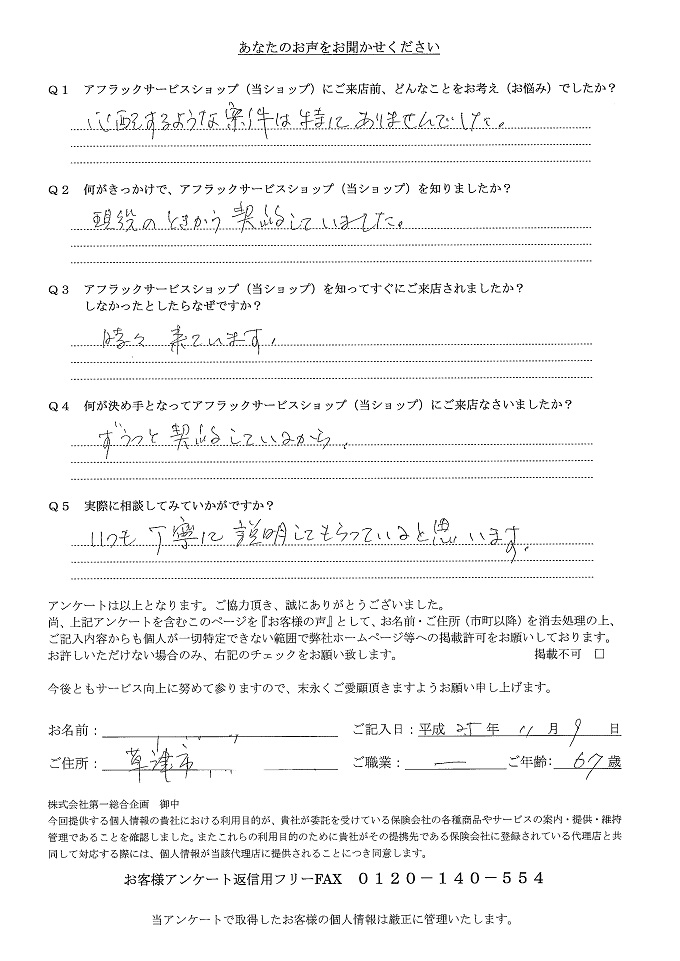 あなたのお声をお聞かせください
Q1 アフラックサービスショップ（当ショップ）にご来店前、どんなことをお考え（お悩み）でしたか？
心配するような案件は特にありませんでした。
Q2 何がきっかけで、アフラックサービスショップ（当ショップ）を知りましたか？
現役のときから契約していました。
Q3 アフラックサービスショップ（当ショップ）を知ってすぐにご来店されましたか？
しなかったとしたらなぜですか？
時々来ています。
Q4 何が決め手となってアフラックサービスショップ（当ショップ）にご来店なさいましたか？
ずうっと契約しているから。
Q5 実際に相談してみていかがですか？
いつも丁寧に説明してもらっていると思います。
アンケートは以上となります。ご協力頂き、誠にありがとうございました。
尚、上記アンケートを含むこのページを『お客様の声』として、お名前・ご住所（市町以降）を消去処理の上、
ご記入内容からも個人が一切特定できない範囲で弊社ホームページ等への掲載許可をお願いしております。
お許しいただけない場合のみ、右記のチェックをお願い致します。 掲載不可 □
今後ともサービス向上に努めて参りますので、末永くご愛顧頂きますようお願い申し上げます。
お名前： ご記入日：平成 25 年 11 月 9 日
ご住所： 草津市 ご職業： ― ご年齢： 67 歳
株式会社第一総合企画 御中
今回提供する個人情報の貴社における利用目的が、貴社が委託を受けている保険会社の各種商品やサービスの案内・提供・維持
管理であることを確認しました。またこれらの利用目的のために貴社がその提携先である保険会社に登録されている代理店と共
同して対応する際には、個人情報が当該代理店に提供されることにつき同意します。
お客様アンケート返信用フリーFAX 0120－140－554
当アンケートで取得したお客様の個人情報は厳正に管理いたします。